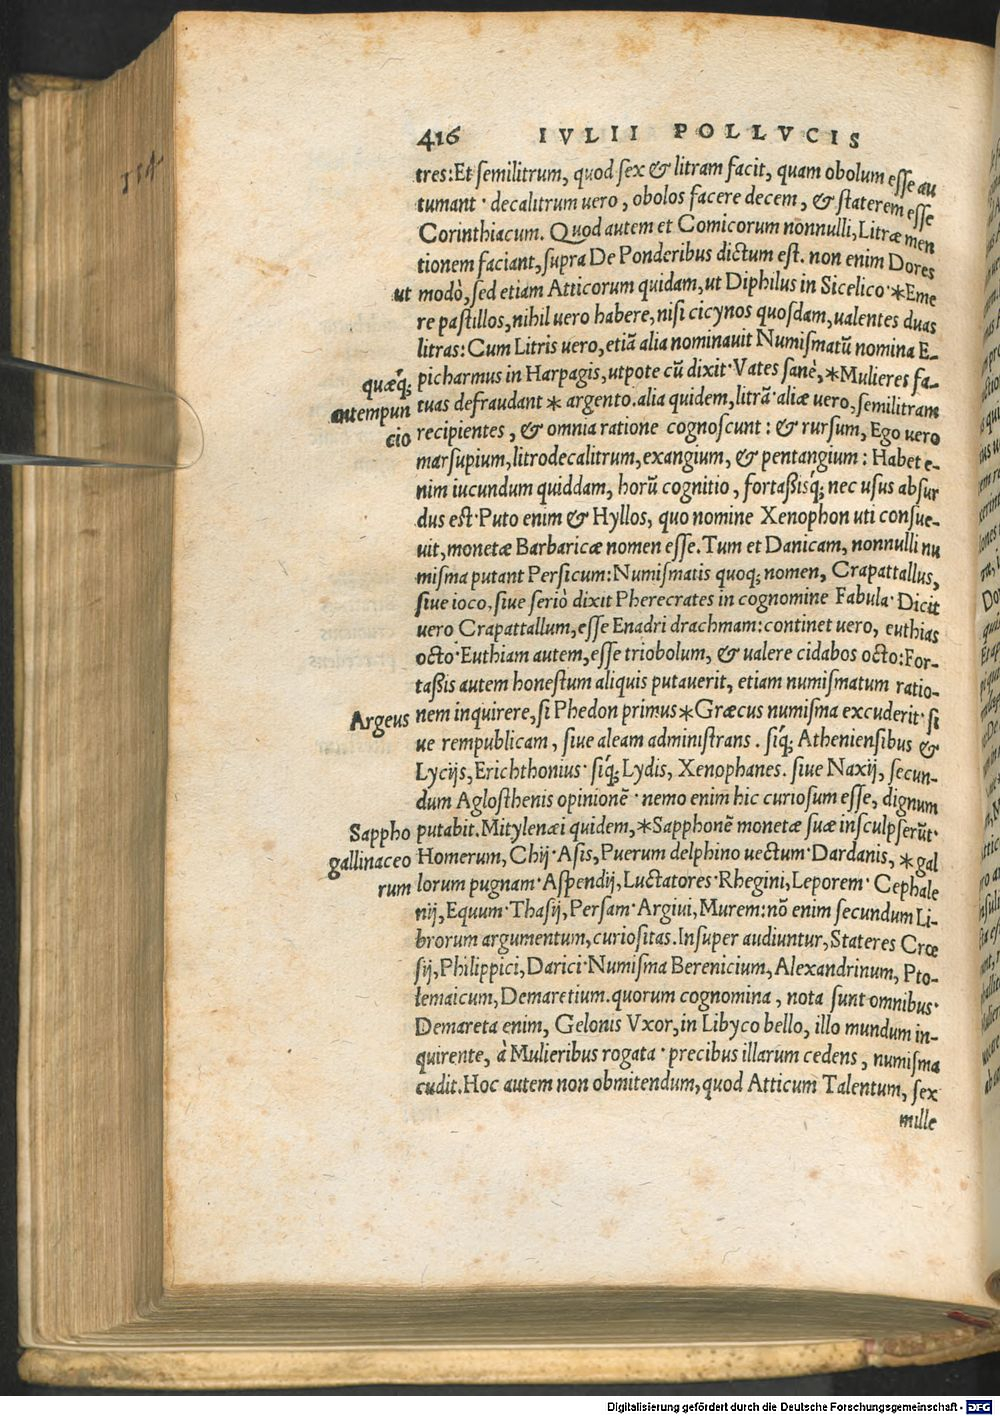 416 IVLII POLLVCIS
154
tres:Et semilitrum, quod sex & litram facit, quam obolum esse au
tumant· decalitrum uero, obolos facere decem, & staterem esse
Corinthiacum. Quod autem et Comicorum nonnulli, Litræ men
tionem faciant, supra De Ponderibus dictum est. non enim Dores
ut modò, sed etiam Atticorum quidam, ut Diphilus in Sicelico·*Eme
re pastillos, nihil uero habere, nisi cicynos quosdam, ualentes duas
litras: Cum Litris uero, etiã alia nominauit Numismatũ nomina E-
quæq; picharmus in Harpagis, utpote cũ dixit· Vates sanè, *Mulieres fa-
autempun tuas defraudant * argento. alia quidem, litrã· aliæ uero, semilitram
cio recipientes, & omnia ratione cognoscunt: & rursum, Ego uero
marsupium, litrodecalitrum, exangium, & pentangium: Habet e-
nim iucundum quiddam, horũ cognitio, fortaßisq́; nec usus absur
dus est· Puto enim & Hyllos, quo nomine Xenophon uti consue-
uit, monetæ Barbaricæ nomen esse. Tum et Danicam, nonnulli nu
misma putant Persicum: Numismatis quoq; nomen, Crapattallus,
siue ioco, siue seriò dixit Pherecrates in cognomine Fabula· Dicit
uero Crapattallum, esse Enadri drachmam: continet uero, euthias
octo· Euthiam autem, esse triobolum, & ualere cidabos octo: For-
taßis autem honestum aliquis putauerit, etiam numismatum ratio-
Argeus nem inquirere, si Phedon primus*Græcus numisma excuderit· si
ue rempublicam, siue aleam administrans. siq́; Atheniensibus &
Lycijs, Erichthonius· siq́; Lydis, Xenophanes. siue Naxij, secun-
dum Aglosthenis opinionẽ· nemo enim hic curiosum esse, dignum
Sappho putabit. Mitylenæi quidem, *Sapphonẽ monetæ suæ insculpserũt·
gallinaceo Homerum, Chij· Asis, Puerum delphino uectum· Dardanis, *gal
rum lorum pugnam· Aspendij, Luctatores· Rhegini, Leporem· Cephale
nij, Equum· Thasij, Persam· Argiui, Murem: nõ enim secundum Li-
brorum argumentum, curiositas. Insuper audiuntur, Stateres Crœ
sij, Philippici, Darici· Numisma Berenicium, Alexandrinum, Pto-
lemaicum, Demaretium. quorum cognomina, nota sunt omnibus·
Demareta enim, Gelonis Vxor, in Libyco bello, illo mundum in-
quirente, à Mulieribus rogata· precibus illarum cedens, numisma
cudit. Hoc autem non obmitendum, quod Atticum Talentum, sex
mille
Digitalisierung gefördert durch die Deutsche Forschungsgemeinschaft - DFG